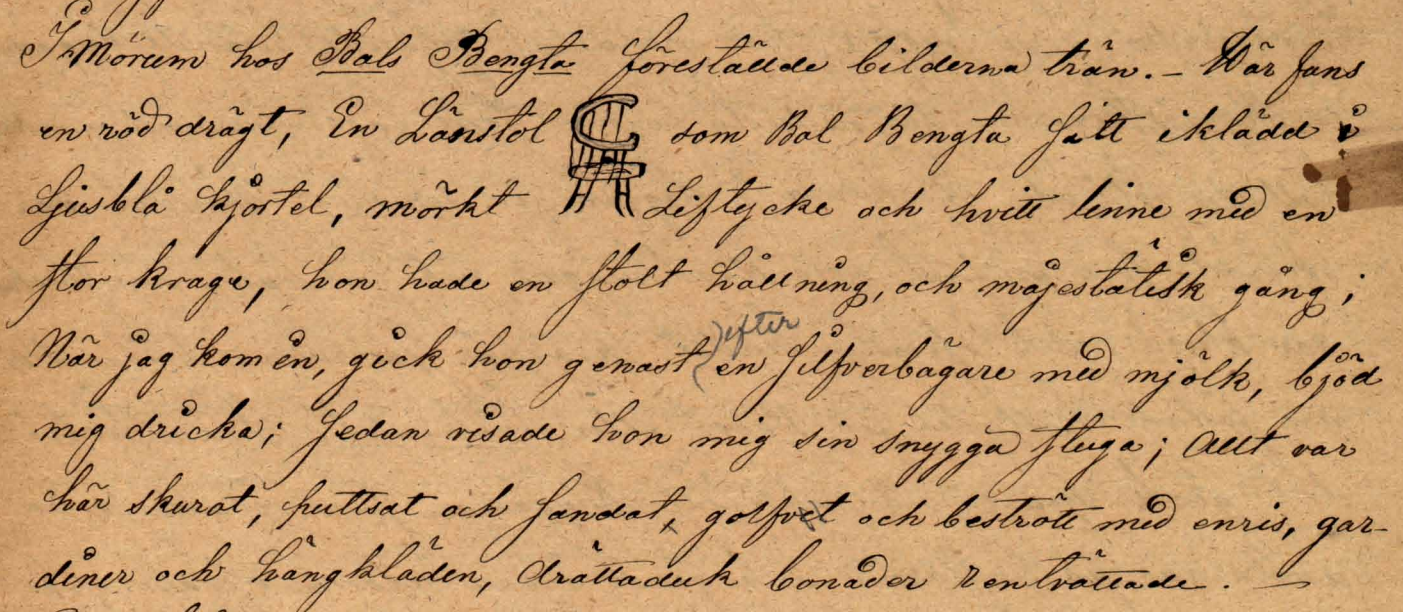 I Mörum hos Bals Bengta föreställde bilderna trän. – Här fans
en röd drägt, En Länstol som Bal Bengta satt iklädd i
Ljusblå kjortel, mörkt Liftycke och hvitt linne med en
stor krage, hon hade en stolt hållning, och majestätisk gång;
När jag kom in, gick hon genast efter en silfverbägare med mjölk, bjöd
mig dricka; sedan visade hon mig sin snygga stuga; Allt var
här skurat, puttsat och sandat, golfvet och bestrött med enris, gar-
diner och hängkläden, drättaduk bonader rentvättade. —